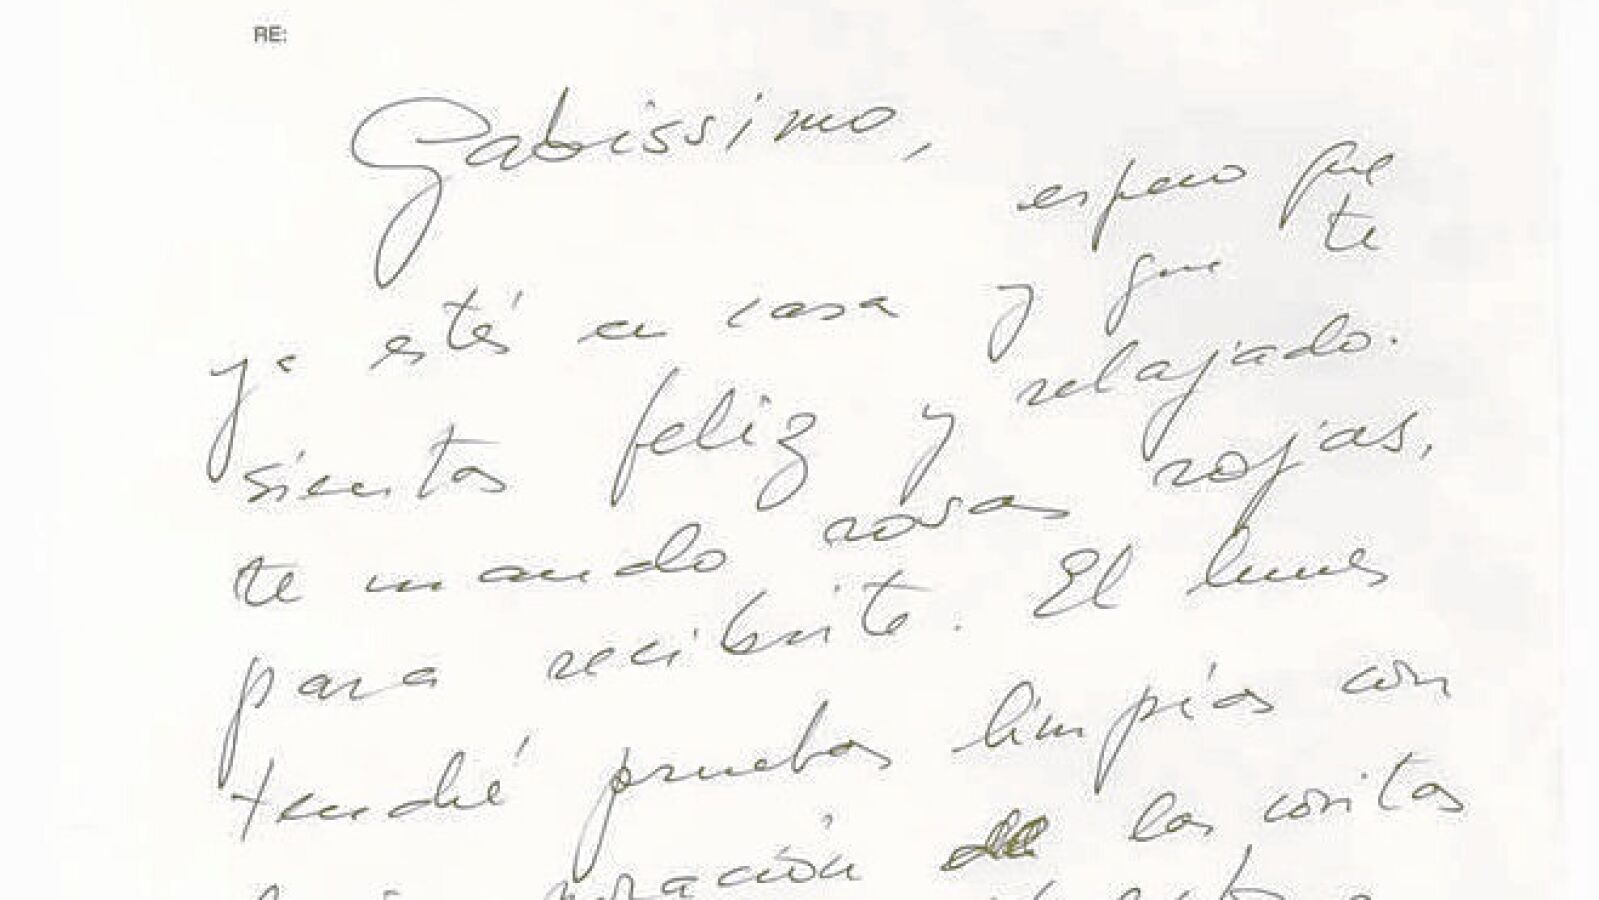 RE:
Gabissimo,
espero que
ya estés en casa y que te
sientas feliz y relajado.
te mando rosas rojas,
para recibirte. El lunes
tendré pruebas limpias con
las cositas